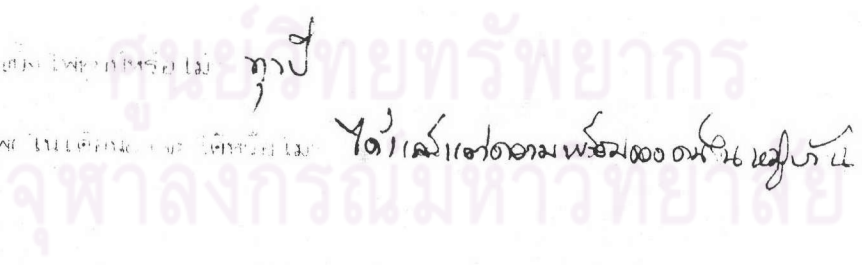 ศูนย์วิทยทรัพยากร
หรือไม่ ทุกปี
หรือไม่ ได้แล้วแต่ความพร้อมของคนในหมู่บ้าน
จุฬาลงกรณ์มหาวิทยาลัย